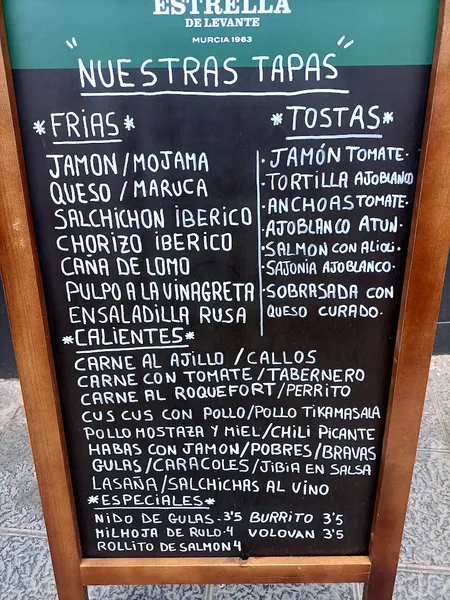 ESTRELLA
DE LEVANTE
MURCIA 1963
"NUESTRAS TAPAS"
*FRIAS*
JAMON/MOJAMA
QUESO/MARUCA
SALCHICHON IBERICO
CHORIZO IBERICO
CAÑA DE LOMO
PULPO A LA VINAGRETA
ENSALADILLA RUSA
*TOSTAS*
·JAMÓN TOMATE·
·TORTILLA AJOBLANCO
·ANCHOAS TOMATE·
·AJOBLANCO ATUN·
·SALMON CON ALIOLI·
·SAJONIA AJOBLANCO·
·SOBRASADA CON
QUESO CURADO·
*CALIENTES*
CARNE AL AJILLO/CALLOS
CARNE CON TOMATE/TABERNERO
CARNE AL ROQUEFORT/PERRITO
CUS CUS CON POLLO/POLLO TIKAMASALA
POLLO MOSTAZA Y MIEL/CHILI PICANTE
HABAS CON JAMON/POBRES/BRAVAS
GULAS/CARACOLES/JIBIA EN SALSA
LASAÑA/SALCHICHAS AL VINO
*ESPECIALES*
NIDO DE GULAS-3'5 BURRITO 3'5
MILHOJA DE RULO-4 VOLOVAN 3'5
ROLLITO DE SALMON 4